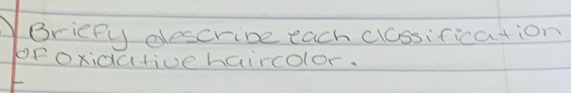 Briefly describe each classification
of oxidative haircolor.